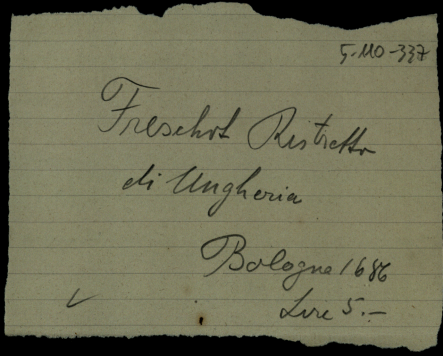 5-110-337
Freschot Ristretto
di Ungheria
Bologna 1686
Lire 5.-